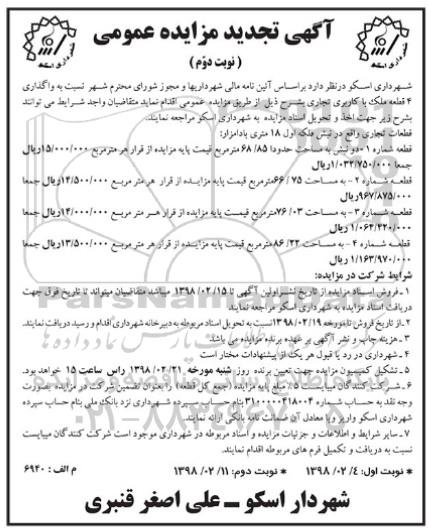 آگهی تجدید مزایده عمومی
( نوبت دوّم )
شهرداری اسکو
شهرداری اسکو
شهرداری اسکو درنظر دارد براساس آئین نامه مالی شهرداریها و مجوز شورای محترم شهر نسبت به واگذاری
۴ قطعه ملک با کاربری تجاری بشرح ذیل از طریق مزایده عمومی اقدام نماید متقاضیان واجد شرایط می توانند
بشرح زیر جهت اخذ و تحویل اسناد مزایده به شهرداری اسکو مراجعه نمایند.
قطعات تجاری واقع در نبش ملکه اول ۱۸ متری بادامزار:
قطعه شماره ۱- دو نبش به مساحت حدودا ۶۸/۸۵ مترمربع قیمت پایه مزایده از قرار هر مترمربع ۱۵/۰۰۰/۰۰۰ریال
جمعا ۱/۰۳۲/۷۵۰/۰۰۰ریال
قطعه شماره ۲- به مساحت ۶۶/۷۵مترمربع قیمت پایه مزایده از قرار هر متر مربع ۱۴/۵۰۰/۰۰۰ریال جمعا
۹۶۷/۸۷۵/۰۰۰ریال
قطعه شماره ۳- به مساحت ۷۶/۰۳مترمربع قیمت پایه مزایده از قرار هر متر مربع ۱۴/۰۰۰/۰۰۰ریال جمعا
۱/۰۶۴/۴۲۰/۰۰۰ریال
قطعه شماره ۴- به مساحت ۸۶/۲۲مترمربع قیمت پایه مزایده از قرار هر متر مربع ۱۳/۵۰۰/۰۰۰ریال جمعا
۱/۱۶۳/۹۷۰/۰۰۰ریال
شرایط شرکت در مزایده:
۱- فروش اسناد مزایده از تاریخ نشر اولین آگهی تا ۱۳۹۸/۰۲/۱۵ میباشد متقاضیان میتواند تا تاریخ فوق جهت
دریافت اسناد مزایده به شهرداری اسکو مراجعه نمایند.
۲- از تاریخ فروش تا مورخه ۱۳۹۸/۰۲/۱۹ نسبت به تحویل اسناد مربوطه به دبیرخانه شهرداری اقدام و رسید دریافت نمایند.
۳- هزینه چاپ و نشر آگهی بر عهده برنده مزایده می باشد.
۴- شهرداری در رد یا قبول هر یک از پیشنهادات مختار است
۵- تشکیل کمیسیون مزایده جهت تعیین برنده روز شنبه مورخه ۱۳۹۸/۰۲/۲۱ راس ساعت ۱۵ خواهد بود.
۶- شرکت کنندگان میبایست ۵٪ مبلغ پایه مزایده (جمع کل قطعه) را بعنوان تضمین شرکت در مزایده بصورت
وجه نقد به حساب شماره ۳۱۰۰۰۰۰۴۱۸۰۰۴ بنام حساب سپرده شهرداری نزد بانک ملی بنام حساب سپرده
شهرداری اسکو واریز ویا معادل آن ضمانت نامه بانکی ارائه نمایند.
۷- سایر شرایط و اطلاعات و جزئیات مزایده و اسناد مربوطه در شهرداری موجود است شرکت کنندگان میبایست
نسبت به دریافت و تکمیل فرم های مربوطه اقدام نمایند.
* نوبت اول: ۱۳۹۸/۰۲/۰۴ * نوبت دوم: ۱۳۹۸/۰۲/۱۱ م الف : ۶۹۴۰
شهردار اسکو ــ علی اصغر قنبری